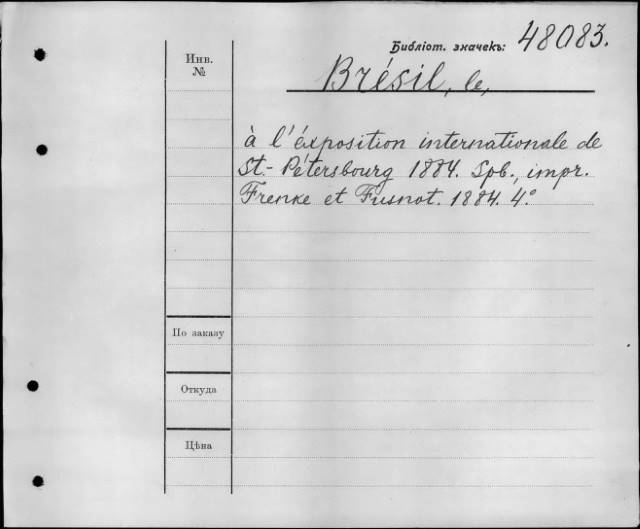 Библіот. значекъ: 48083.
Инв.
№
Brésil, le,
à l'éxposition internationale de
St.-Pétersbourg 1884. Spb., impr.
Trenke et Fusnot. 1884. 4°.
По заказу
Откуда
Цѣна